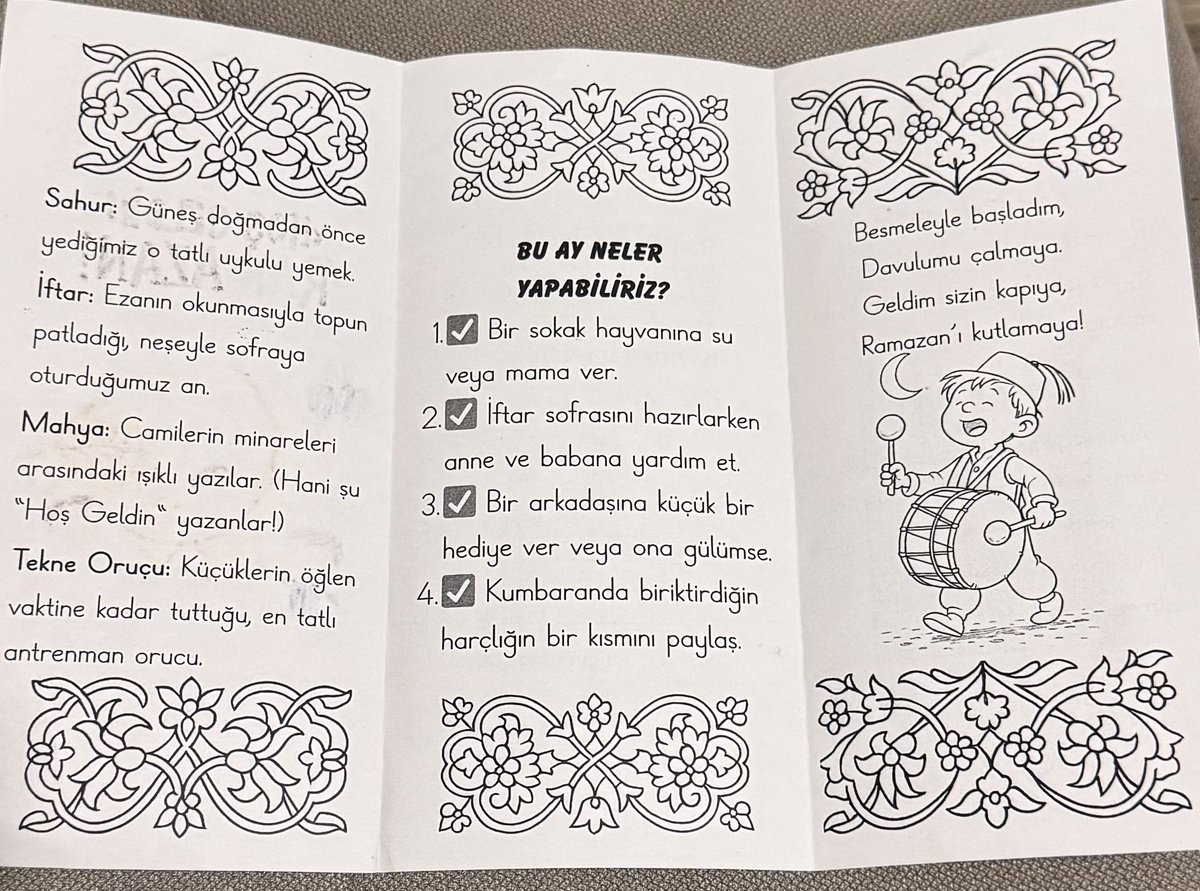 Sahur: Güneş doğmadan önce
yediğimiz o tatlı uykulu yemek.
İftar: Ezanın okunmasıyla topun
patladığı, neşeyle sofraya
oturduğumuz an.
Mahya: Camilerin minareleri
arasındaki ışıklı yazılar. (Hani şu
“Hoş Geldin“ yazanlar!)
Tekne Orucu: Küçüklerin öğlen
vaktine kadar tuttuğu, en tatlı
antrenman orucu.
BU AY NELER
YAPABİLİRİZ?
1.✅ Bir sokak hayvanına su
veya mama ver.
2.✅ İftar sofrasını hazırlarken
anne ve babana yardım et.
3.✅ Bir arkadaşına küçük bir
hediye ver veya ona gülümse.
4.✅ Kumbaranda biriktirdiğin
harçlığın bir kısmını paylaş.
Besmeleyle başladım,
Davulumu çalmaya.
Geldim sizin kapıya,
Ramazan’ı kutlamaya!